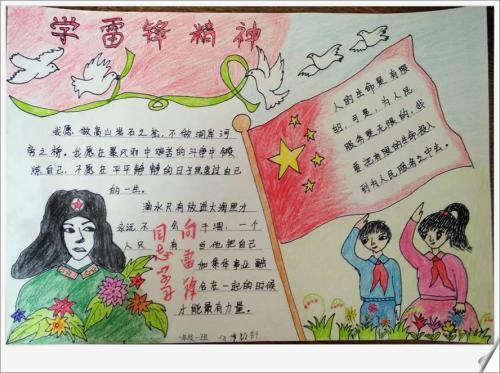 学雷锋精神
我愿做高山岩石之松,不做湖岸河
旁之柳。我愿在暴风雨中艰苦的斗争中锻
炼自己,不愿在平平静静的日子里度过自己
的一生。
滴水只有放进大海里才
永远不会干涸,一个
人只有当他把自己
和集体事业融
合在一起的时候
才能最有力量。
向雷锋
同志学习
人的生命是有限
的,可是,为人民
服务是无限的,我
要把有限的生命投入
到为人民服务之中去。
一年级一班